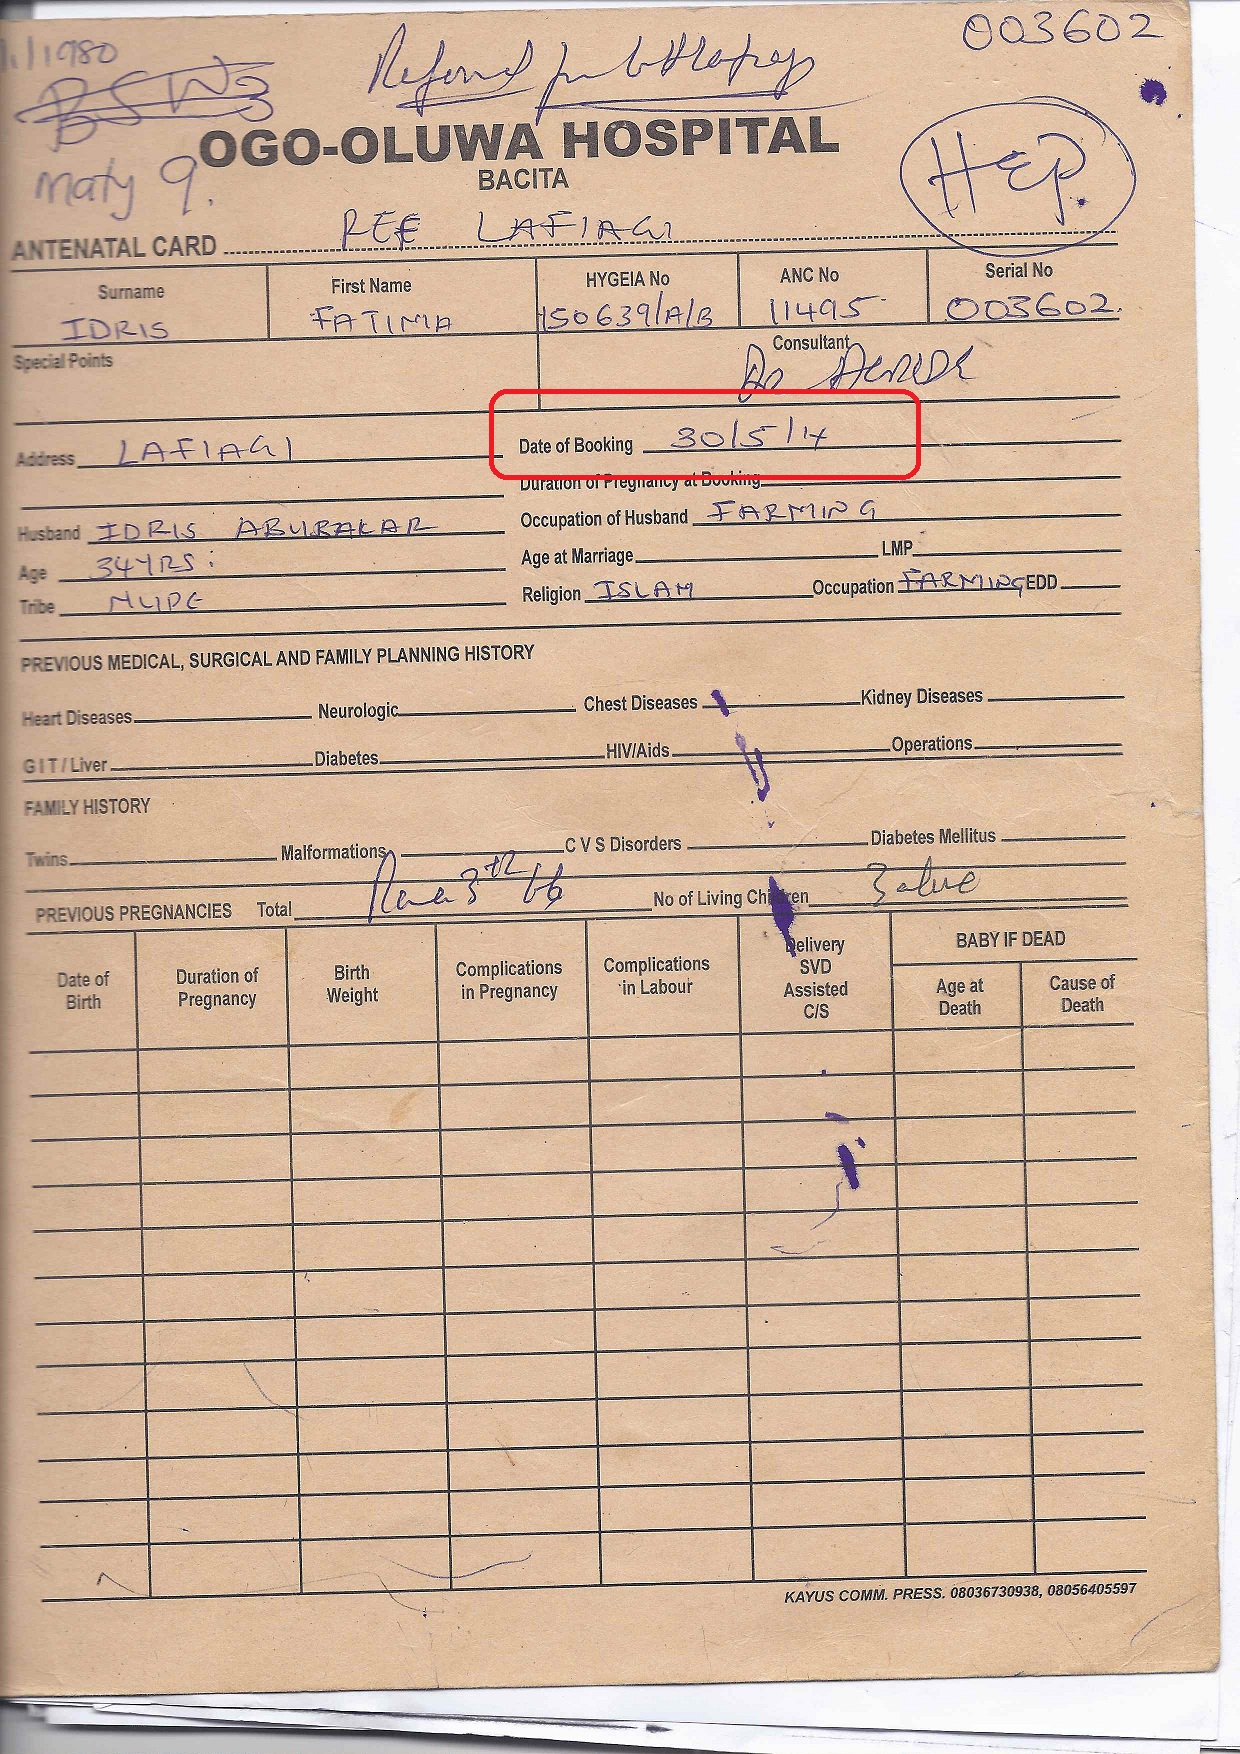 1/1980
003602
BSW3
Referred for
OGO-OLUWA HOSPITAL
BACITA
HEP.
Maty 9.
ANTENATAL CARD REF LAFIAGI
Surname First Name HYGEIA No ANC No Serial No
IDRIS FATIMA 150639/A/B 11495 003602.
Special Points Consultant
Dr
Address LAFIAGI Date of Booking 30/5/14
Duration of Pregnancy at Booking
Husband IDRIS ABUBAKAR Occupation of Husband FARMING
Age 34YRS: Age at Marriage LMP
Tribe NUPE Religion ISLAM Occupation FARMING EDD
PREVIOUS MEDICAL, SURGICAL AND FAMILY PLANNING HISTORY
Heart Diseases Neurologic Chest Diseases Kidney Diseases
G I T / Liver Diabetes HIV/Aids Operations
FAMILY HISTORY
Twins Malformations C V S Disorders Diabetes Mellitus
PREVIOUS PREGNANCIES Total Para 3 No of Living Children 3 alive
Date of Birth Duration of Pregnancy Birth Weight Complications in Pregnancy Complications in Labour Delivery SVD Assisted C/S BABY IF DEAD
Age at Death Cause of Death
KAYUS COMM. PRESS. 08036730938, 08056405597